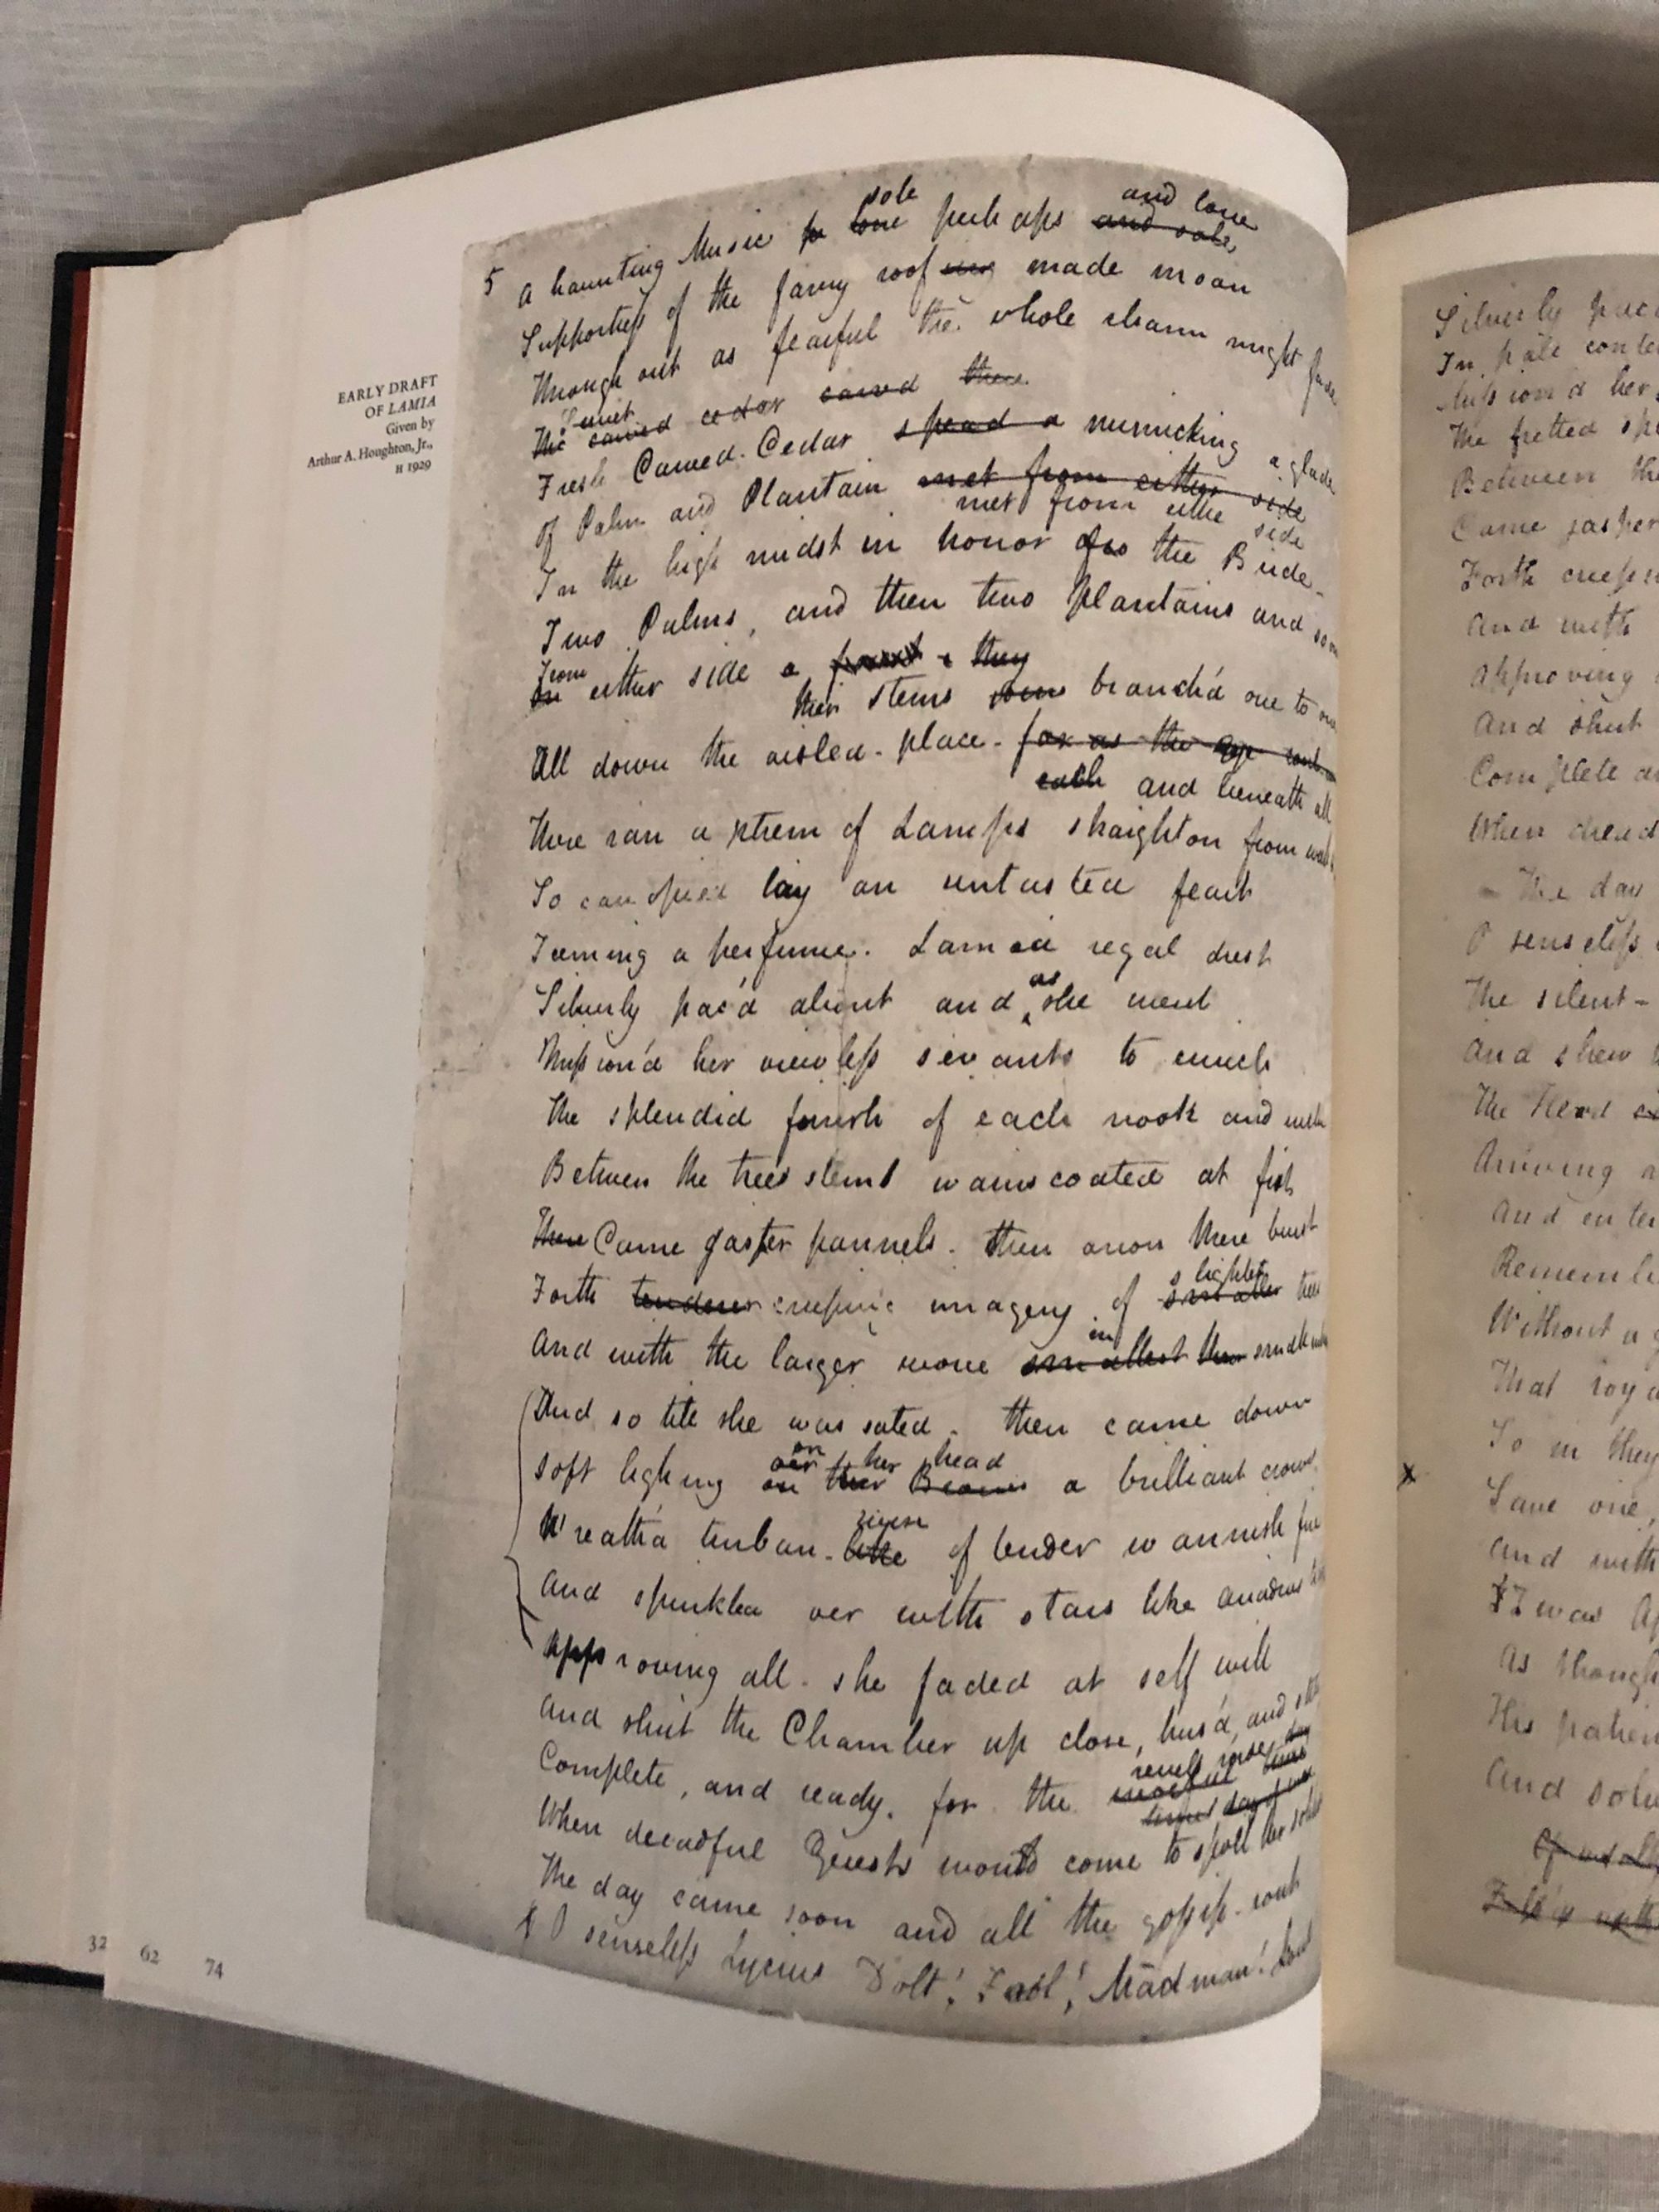 EARLY DRAFT
OF LAMIA
Given by
Arthur A. Houghton, Jr.,
H 1929
sole and lone
5 A haunting Music lone perhaps and sole
Supportress of the faery roof made moan
Through out as fearful the whole charm might fade
The carved cedar carved there
Fresh Carved Cedar spread a mimicking a glade
Of Palm and Plantain met from either side
met from eithe side
In the high midst in honor of the Bride
Two Palms, and then two Plantains and so on
From
On either side a forest they
their stems branch'd one to one
All down the aisled place for as the
each and beneath all
There ran a strem of Lamps straight on from wall
So canopied lay an untasted feast
Teeming a perfume. Lamia regal drest
as
Silverly pac'd about and she went
Mission'd her viewless servants to enrich
The splendid finish of each nook and niche
Between the tree stems wainscoated at first
There Came jasper pannels. then anon there burst
slighter
Forth tenderer creeping imagery of smaller trees
in
And with the larger wove smallest then small
And so till she was sated. then came down
on her head
Soft lighting on her Brows a brilliant crown
Wreath'd turban like of tender wannish fire
And sprinkled oer with stars like
Approving all. she faded at self will
And shut the Chamber up close, hus'd, and still
revels rude
Complete, and ready, for the
When dreadful Guests would come to spoil her
The day came soon and all the gossip-rout
O senseless Lycius Dolt! Fool! Madman! Lout
32 62 74
Silverly
In pale
her
The fretted
Between the
Came jasper
Forth
And with
Approving
And shut
Complete
When dread
The day
O senseless
The silent-
And shew
The Herd
Arriving
And
Without
That
So in they
x
Save one,
And with
T was
As though
His
And